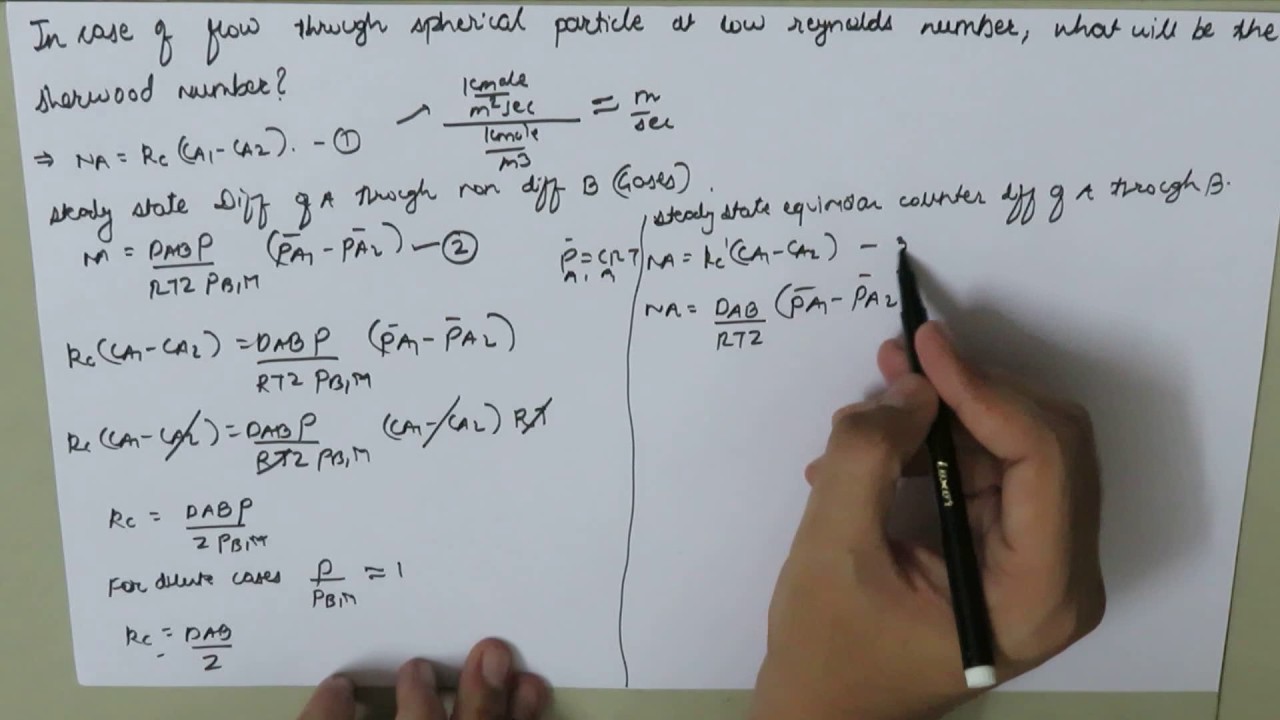 In case of flow through spherical particle at low reynolds number, what will be the
sherwood number?
⇒ NA = Kc (CA1 - CA2). - ①
kmole
m² sec
kmole
m3
= m
sec
steady state Diff of A through non diff B (Gases).
NA = DAB P (p̄A1 - p̄A2) - ②
RTZ PB,M
Kc (CA1 - CA2) = DAB P (p̄A1 - p̄A2)
RTZ PB,M
Kc (CA1 - CA2) = DAB P (CA1 - CA2) RT
RTZ PB,M
Kc = DAB P
Z PB,M
For dilute cases P ≈ 1
PB,M
Kc = DAB
Z
p̄ = CRT
A, A
steady state equimolar counter diff of A through B.
NA = Kc' (CA1 - CA2) -
NA = DAB (p̄A1 - p̄A2
RTZ
Luxor